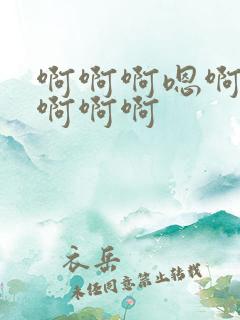 啊啊啊嗯啊
啊啊啊
衣岳
未经同意禁止转载